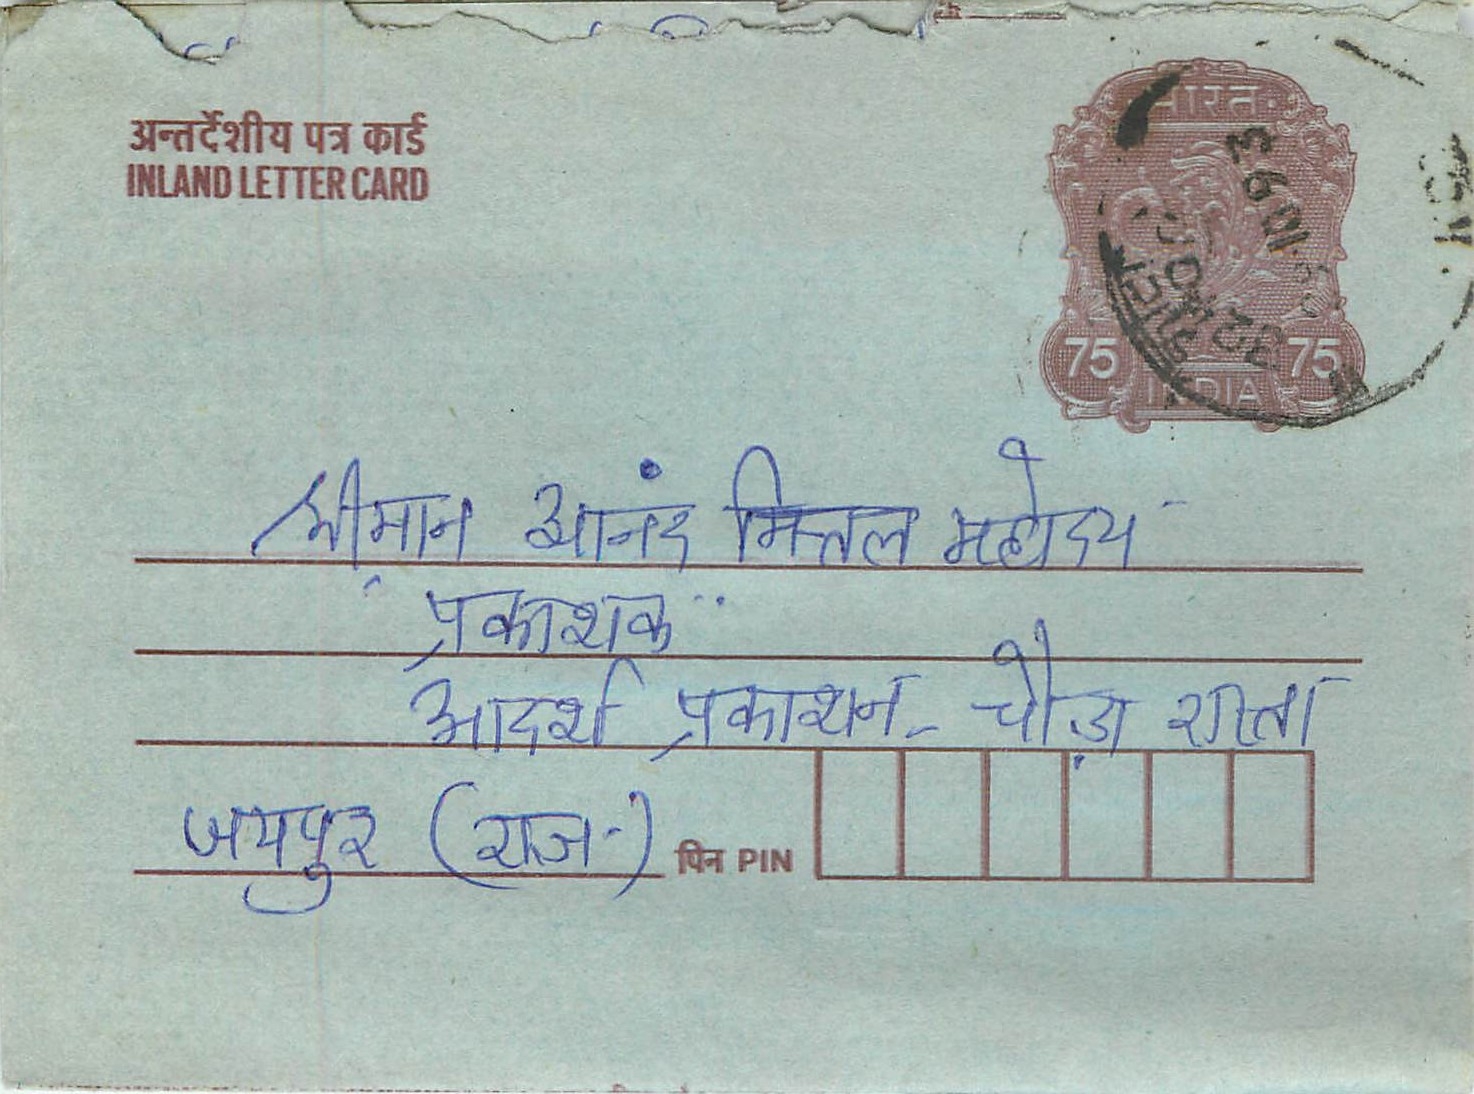 अन्तर्देशीय पत्र कार्ड
INLAND LETTER CARD
भारत
75 75
INDIA
श्रीमान आनंद मित्तल महोदय
प्रकाशक
आदर्श प्रकाशन - चौड़ा रास्ता
जयपुर (राज.)
पिन PIN